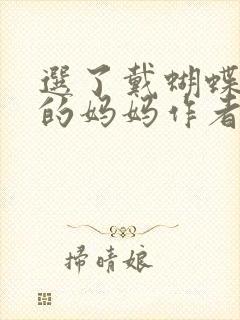 選了戴蝴蝶
的妈妈作者
掃晴娘